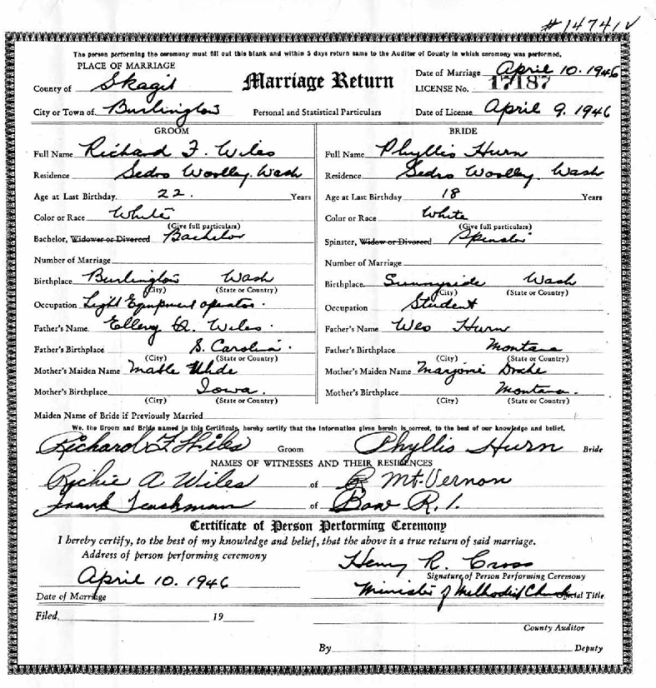 #14741 ✓
The person performing the ceremony must fill out this blank and within 5 days return same to the Auditor of County in which ceremony was performed.
PLACE OF MARRIAGE
County of Skagit
City or Town of Burlington
Marriage Return
Personal and Statistical Particulars
Date of Marriage April 10. 1946
LICENSE No. 17187
Date of License April 9. 1946
GROOM
Full Name Richard F. Wiles
Residence Sedro Woolley, Wash
Age at Last Birthday 22. Years
Color or Race White
(Give full particulars)
Bachelor, Widower or Divorced Bachelor
Number of Marriage
Birthplace Burlington Wash
(City) (State or Country)
Occupation Light Equipment operator.
Father's Name Ellery Q. Wiles.
Father's Birthplace S. Carolina.
(City) (State or Country)
Mother's Maiden Name Mable
Mother's Birthplace Iowa.
(City) (State or Country)
BRIDE
Full Name Phyllis Hurn
Residence Sedro Woolley, Wash
Age at Last Birthday 18 Years
Color or Race White
(Give full particulars)
Spinster, Widow or Divorced Spinster
Number of Marriage
Birthplace Sunnyside Wash
(City) (State or Country)
Occupation Student
Father's Name Wes Hurn
Father's Birthplace Montana
(City) (State or Country)
Mother's Maiden Name Marjorie
Mother's Birthplace Montana.
(City) (State or Country)
Maiden Name of Bride if Previously Married
We, the Groom and Bride named in this Certificate, hereby certify that the information given herein is correct, to the best of our knowledge and belief.
Richard F Wiles Groom Phyllis Hurn Bride
NAMES OF WITNESSES AND THEIR RESIDENCES
Richie A Wiles of Mt. Vernon
Frank of Bow R. 1.
Certificate of Person Performing Ceremony
I hereby certify, to the best of my knowledge and belief, that the above is a true return of said marriage.
Address of person performing ceremony
Henry R. Cross
Signature of Person Performing Ceremony
April 10. 1946
Minister of Methodist Church Official Title
Date of Marriage
Filed 19
County Auditor
By Deputy